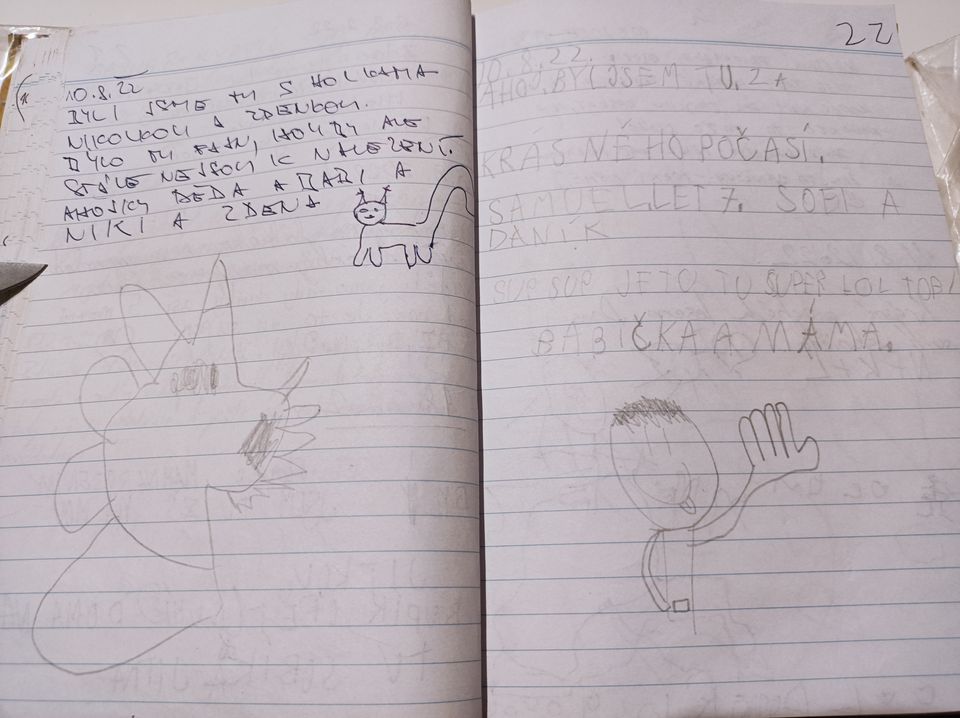 10.8.22
BYLI JSME TU S HOLKAMA
NIKOLKOU A ZDENKOU.
BYLO TU FAJN, HOUBY ALE
STÁLE NEJSOU K NALEZENÍ.
AHOJKY DĚDA A BABI A
NIKI A ZDENA
22
10.8.22.
AHOJ.BYL JSEM TU.ZA
KRÁSNÉHO POČASÍ.
SAMUEL.LET 7. SOFI A
DANÍK
SUP SUP JE TO TU SUPER LOL TOBI
BABIČKA A MÁMA.